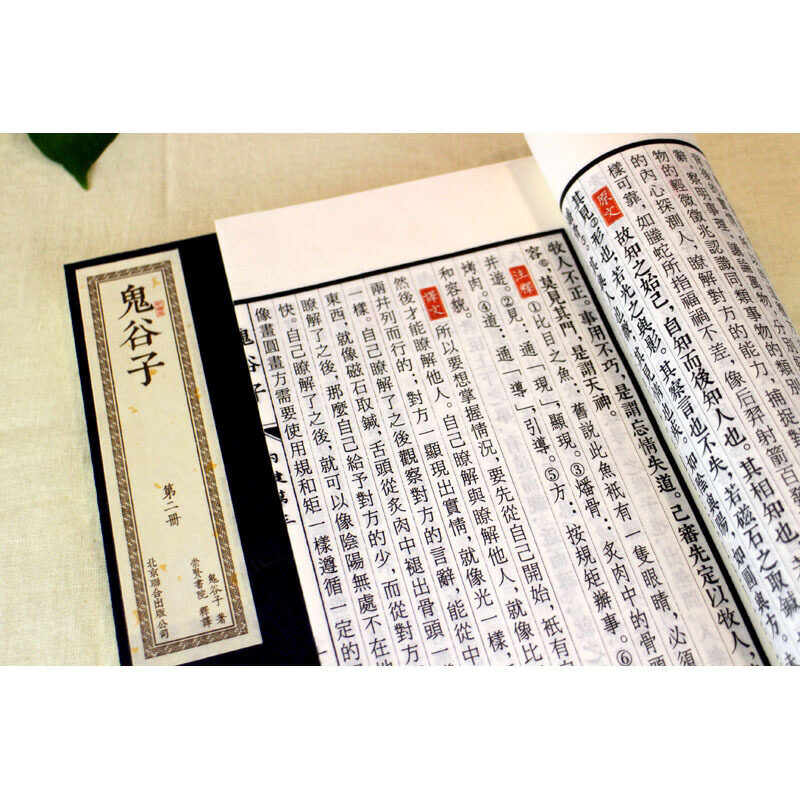 物的輕微徵兆認識同類事物的類別
的內心探測人，瞭解對方的能力，捕捉對
樣可靠，如螣蛇所指禍福不差，像后羿射箭百發
原文 故知之始己，自知而後知人也。其相知也，
其見②形也，若光之與影。其察言也不失，若磁石之取鍼，
如陰與陽，如圓與方。
牧人不正。事用不巧，是謂忘情失道。己審先定以牧人，
容⑥，是見其門，是謂天神。
注釋 ①比目之魚：舊說此魚衹有一隻眼睛，必須
并遊。②見：通「現」，顯現。③燔骨：炙肉中的骨頭
烤肉。④道：通「導」，引導。⑤方：按規矩辦事。⑥
和容貌。
譯文 所以要想掌握情況，要先從自己開始，衹有
然後才能瞭解他人。自己瞭解與瞭解他人，就像比
兩并列而行的；對方一顯現出實情，就像光一樣，
一樣。自己瞭解了之後觀察對方的言辭，能從中
東西，就像磁石取鍼，舌頭從炙肉中褪出骨頭一
瞭解了之後，那麼自己給予對方的少，而從對方
快。自己瞭解了之後，就可以像陰陽無處不在地
像畫圓畫方需要使用規和矩一樣遵循一定的
鬼谷子
鬼谷子
第二冊
鬼谷子 著
崇賢書院 釋譯
北京聯合出版公司